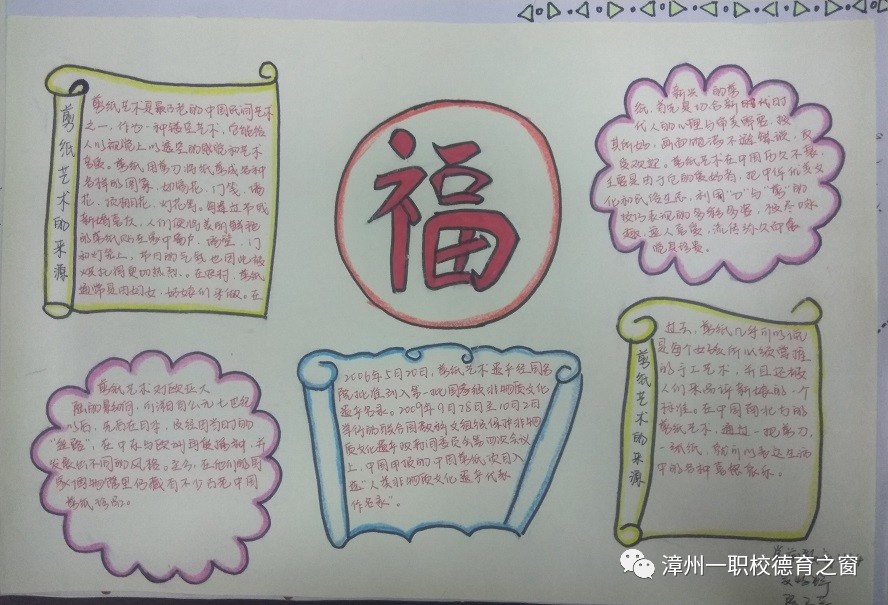 剪纸艺术的来源
剪纸艺术是最古老的中国民间艺术
之一，作为一种镂空艺术，它能给
人以视觉上以透空的感觉和艺术
享受。剪纸用剪刀将纸剪成各种
各样的图案，如窗花、门笺、墙
花、顶棚花、灯花等。每逢过节或
新婚喜庆，人们便将美丽鲜艳
的剪纸贴在家中窗户、墙壁、门
和灯笼上，节日的气氛也因此被
烘托得更加热烈。在农村，剪纸
通常是由妇女、姑娘们来做。在
福
新兴的剪
纸，首先是切合新时代时
代人的心理与审美
剪纸艺术在中国历久不衰，
主要是由于它的
化和民俗生态，利用"刀"与"剪"的
技巧表现的多彩多姿，独尽
趣，
剪纸艺术对欧亚大
陆的影响，
以后，先后在日本、波
"丝路"，在中东与欧洲再度播种，并
发展出不同的风格。至今，在他们的国
家博物馆里仍藏有不少古老中国
剪纸珍品。
2006年5月20日，剪纸艺术遗产经国务
院批准列入第一批国家级非物质文化
遗产名录。2009年9月28日至10月2日
举行的联合国教科文组织保护非物
质文化遗产政府间委员会第四次会议
上，中国申报的中国剪纸项目入
选"人类非物质文化遗产代表
作名录"。
剪纸艺术的来源
过去，剪纸几乎可以说
是每个女孩所必须掌握
的手工艺术，并且还被
人们来品评新娘的一个
标准。在中国南北方的
剪纸艺术，通过一把剪刀、
一张纸，就可以表达生活
中的各种喜怒哀乐。
漳州一职校德育之窗